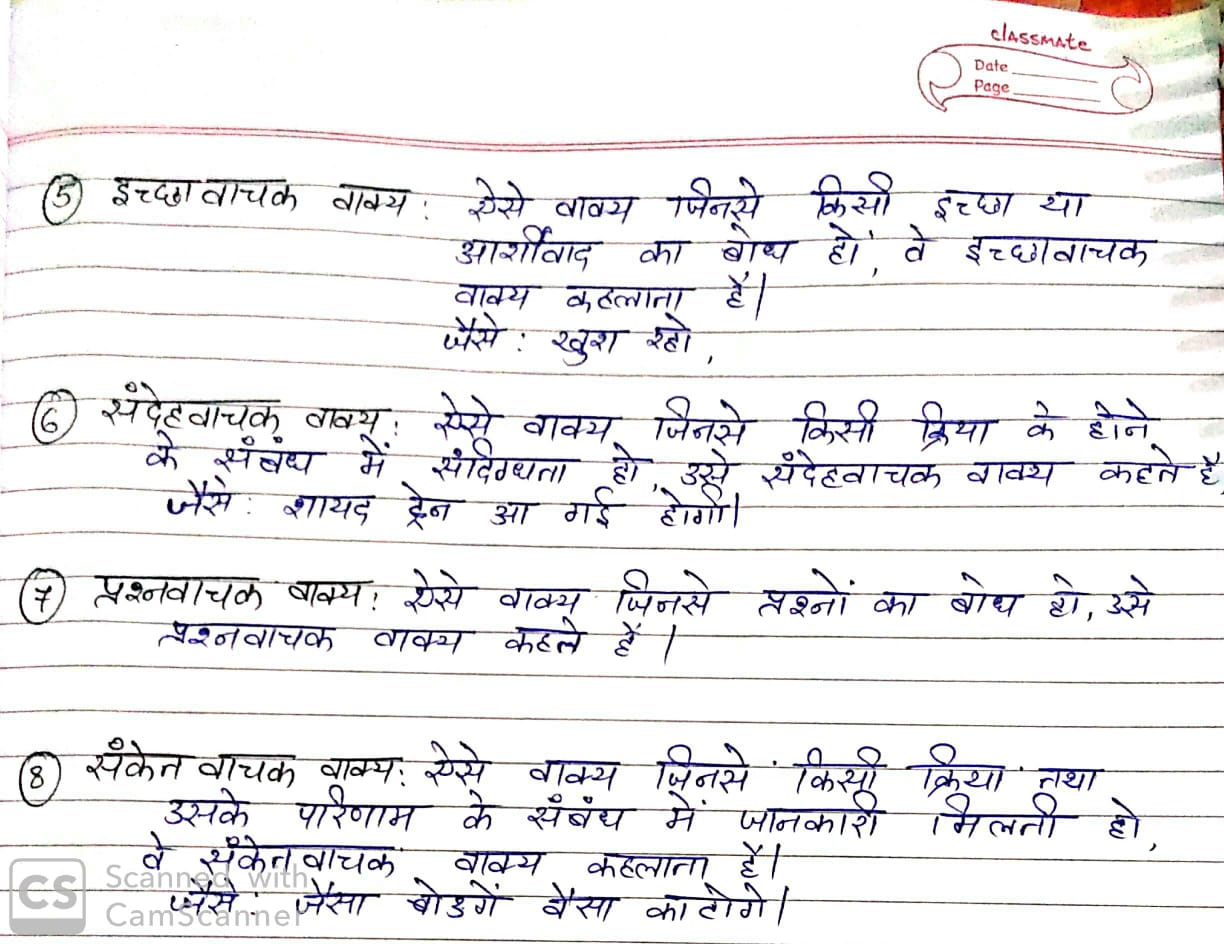 classmate
Date
Page
⑤ इच्छावाचक वाक्य : ऐसे वाक्य जिनसे किसी इच्छा या
आर्शीवाद का बोध हों, वे इच्छावाचक
वाक्य कहलाता है।
जैसे : खुश रहो,
⑥ संदेहवाचक वाक्य : ऐसे वाक्य जिनसे किसी क्रिया के होने
के संबंध में संदिग्धता हो, उसे संदेहवाचक वाक्य कहते है,
जैसे : शायद ट्रेन आ गई होगी।
⑦ प्रश्नवाचक वाक्य : ऐसे वाक्य जिनसे प्रश्नों का बोध हो, उसे
प्रश्नवाचक वाक्य कहते हैं।
⑧ संकेतवाचक वाक्य : ऐसे वाक्य जिनसे किसी क्रिया तथा
उसके परिणाम के संबंध में जानकारी मिलती हो,
वे संकेतवाचक वाक्य कहलाता है।
जैसे : जैसा बोउगें वैसा काटोगे।
CS Scanned with
CamScanner